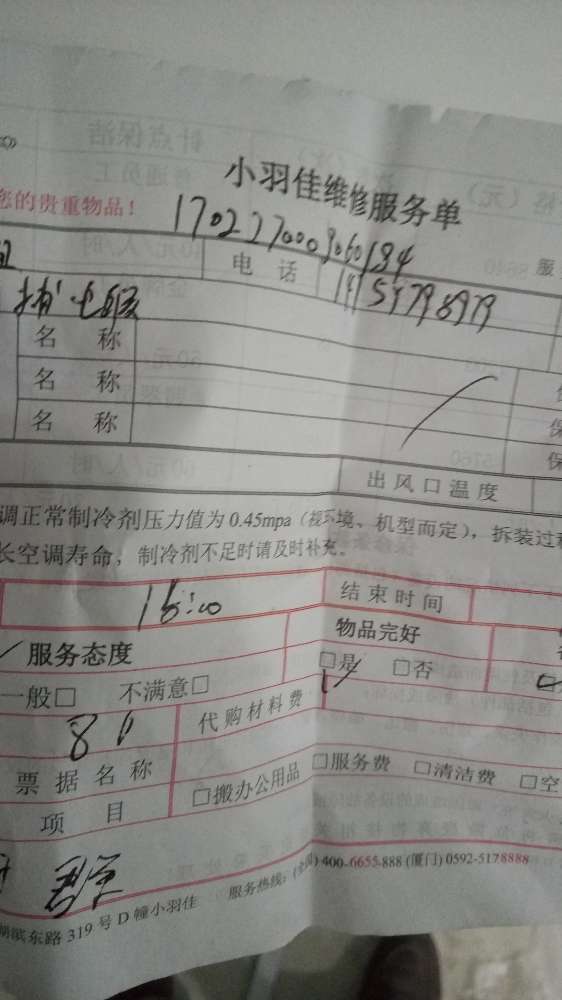 小羽佳维修服务单
您的贵重物品！
1702270009060194
电 话
服
名 称
名 称
名 称
保
保
保
出风口温度
调正常制冷剂压力值为0.45mpa（视环境、机型而定），拆装过程
长空调寿命，制冷剂不足时请及时补充。
结束时间
服务态度
物品完好
一般□ 不满意□
□是 □否
80
代购材料费
票据名称
□搬办公用品 □服务费 □清洁费 □空
项 目
服务热线：(全国) 400-6655-888 (厦门) 0592-5178888
湖滨东路 319 号 D 幢小羽佳